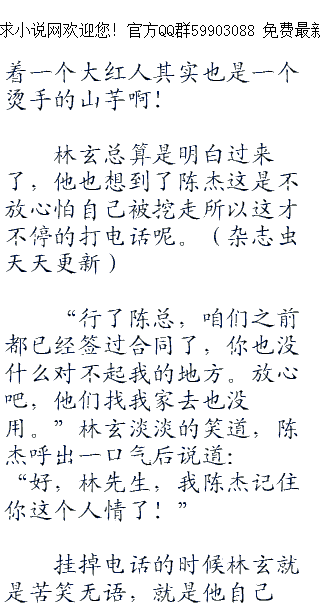 求小说网欢迎您！官方QQ群59903088 免费最新
着一个大红人其实也是一个
烫手的山芋啊！
林玄总算是明白过来
了，他也想到了陈杰这是不
放心怕自己被挖走所以这才
不停的打电话呢。（杂志虫
天天更新）
“行了陈总，咱们之前
都已经签过合同了，你也没
什么对不起我的地方。放心
吧，他们找我家去也没
用。”林玄淡淡的笑道，陈
杰呼出一口气后说道：
“好，林先生，我陈杰记住
你这个人情了！”
挂掉电话的时候林玄就
是苦笑无语，就是他自己